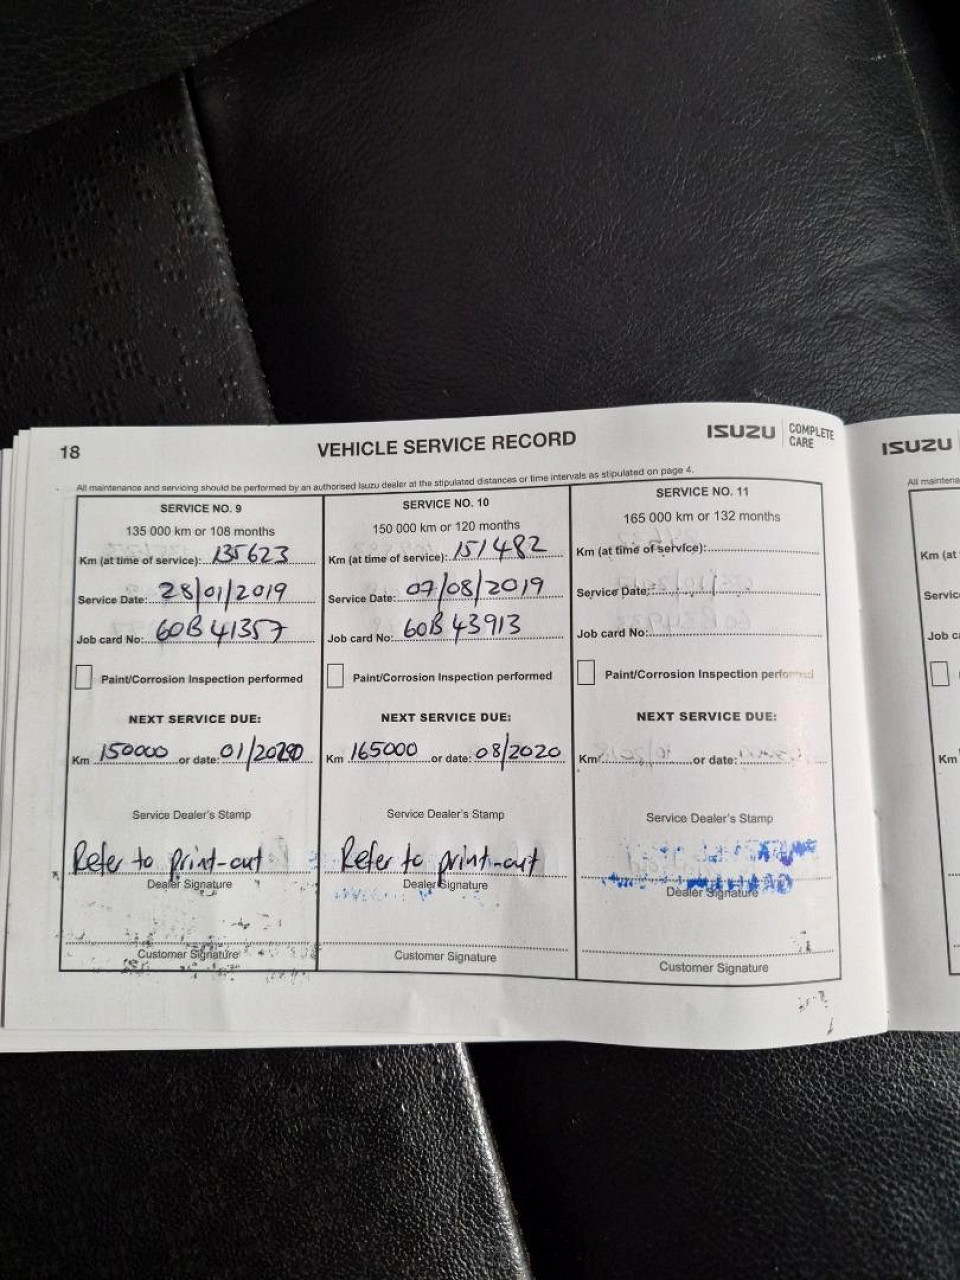 18
VEHICLE SERVICE RECORD
ISUZU COMPLETE CARE
All maintenance and servicing should be performed by an authorised Isuzu dealer at the stipulated distances or time intervals as stipulated on page 4.
SERVICE NO. 9
135 000 km or 108 months
Km (at time of service): 135623
Service Date: 28/01/2019
Job card No: 60B 41357
Paint/Corrosion Inspection performed
NEXT SERVICE DUE:
Km 150000 or date: 01/2020
Service Dealer's Stamp
Refer to print-out
Dealer Signature
Customer Signature
SERVICE NO. 10
150 000 km or 120 months
Km (at time of service): 151482
Service Date: 07/08/2019
Job card No: 60B 43913
Paint/Corrosion Inspection performed
NEXT SERVICE DUE:
Km 165000 or date: 08/2020
Service Dealer's Stamp
Refer to print-out
Dealer Signature
Customer Signature
SERVICE NO. 11
165 000 km or 132 months
Km (at time of service):
Service Date:
Job card No:
Paint/Corrosion Inspection performed
NEXT SERVICE DUE:
Km or date:
Service Dealer's Stamp
Dealer Signature
Customer Signature
ISUZU
All maintena
Km (at
Servic
Job ca
Km